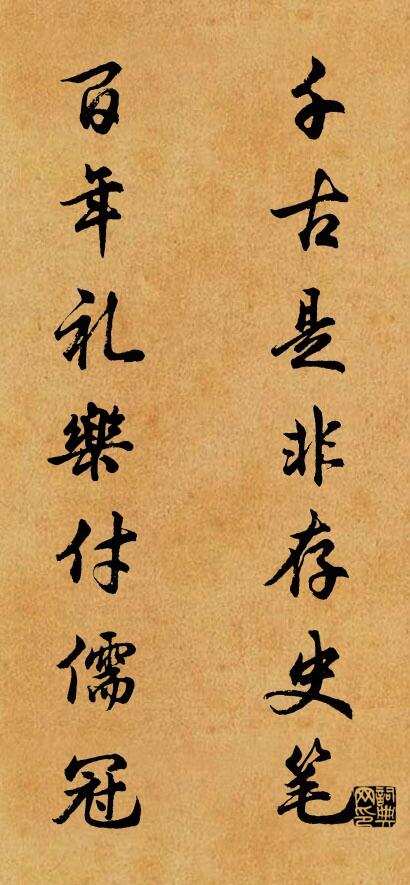 千古是非存史笔
百年礼樂付儒冠
詞典网印